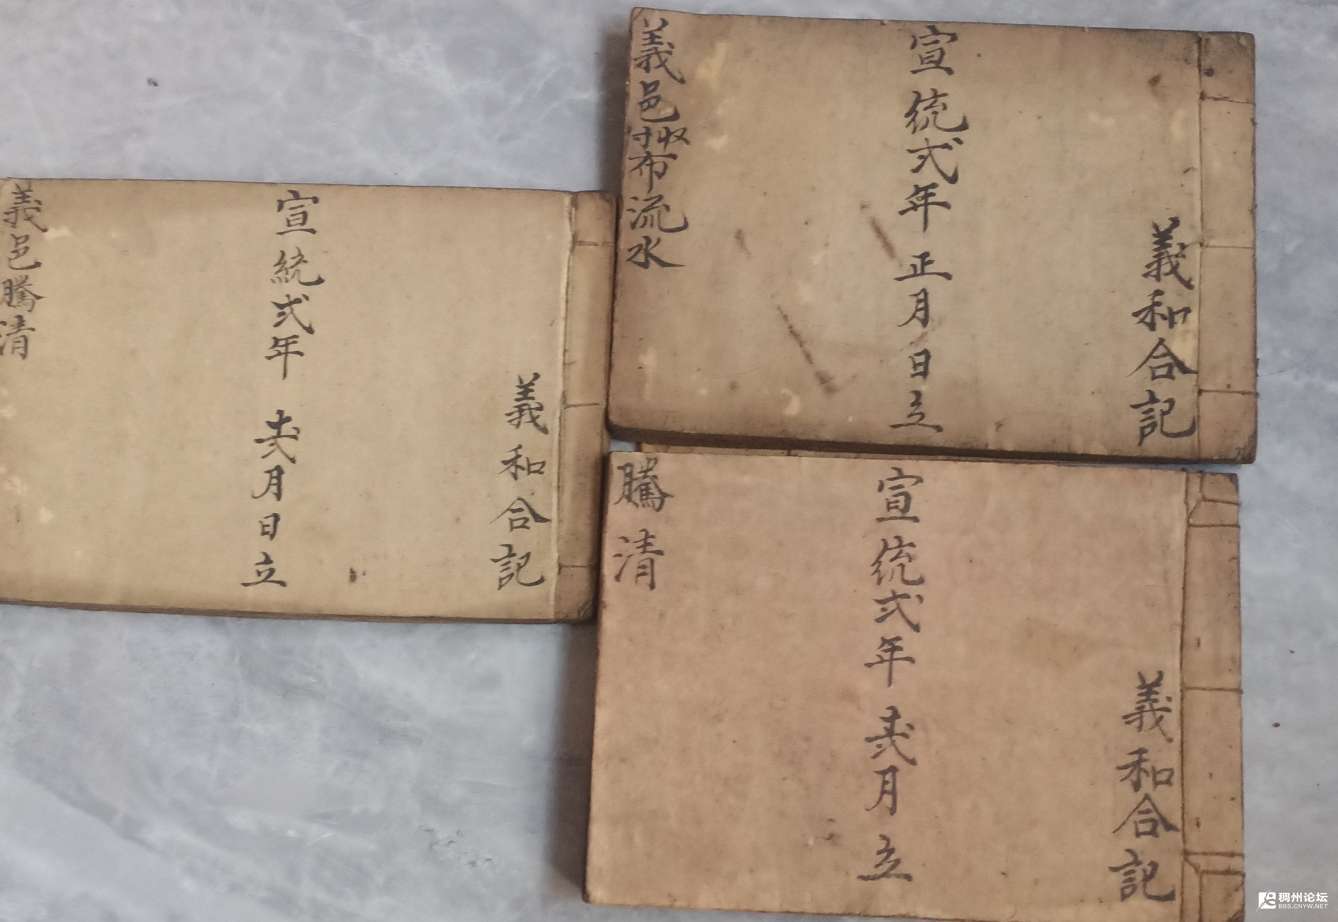 義和合記
宣統弍年 十弍月日立
義邑騰清
義和合記
宣統弍年正月日立
義邑 布流水
義和合記
宣統弍年 十弍月立
騰清
稠州论坛
BBS.CNYW.NET